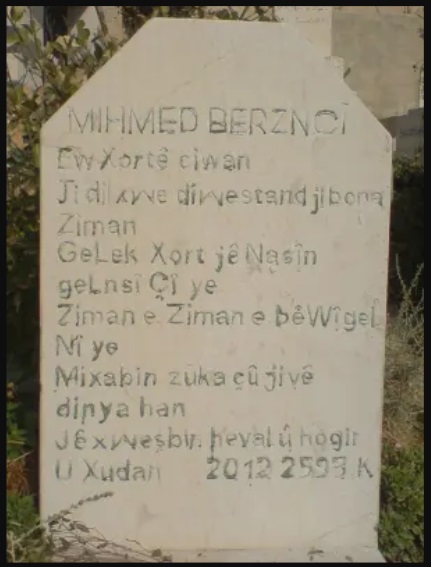 MIHMED BERZNCÎ
Ew Xortê ciwan
Ji dil xwe diwestand ji bona
Ziman
GeLek Xort jê Nasîn
geLnsî Çî ye
Ziman e Ziman e bêWî geL
Nî ye
Mixabin zûka çû ji vê
dinya han
Jê xweş bin heval û hogir
U Xudan 2012 K